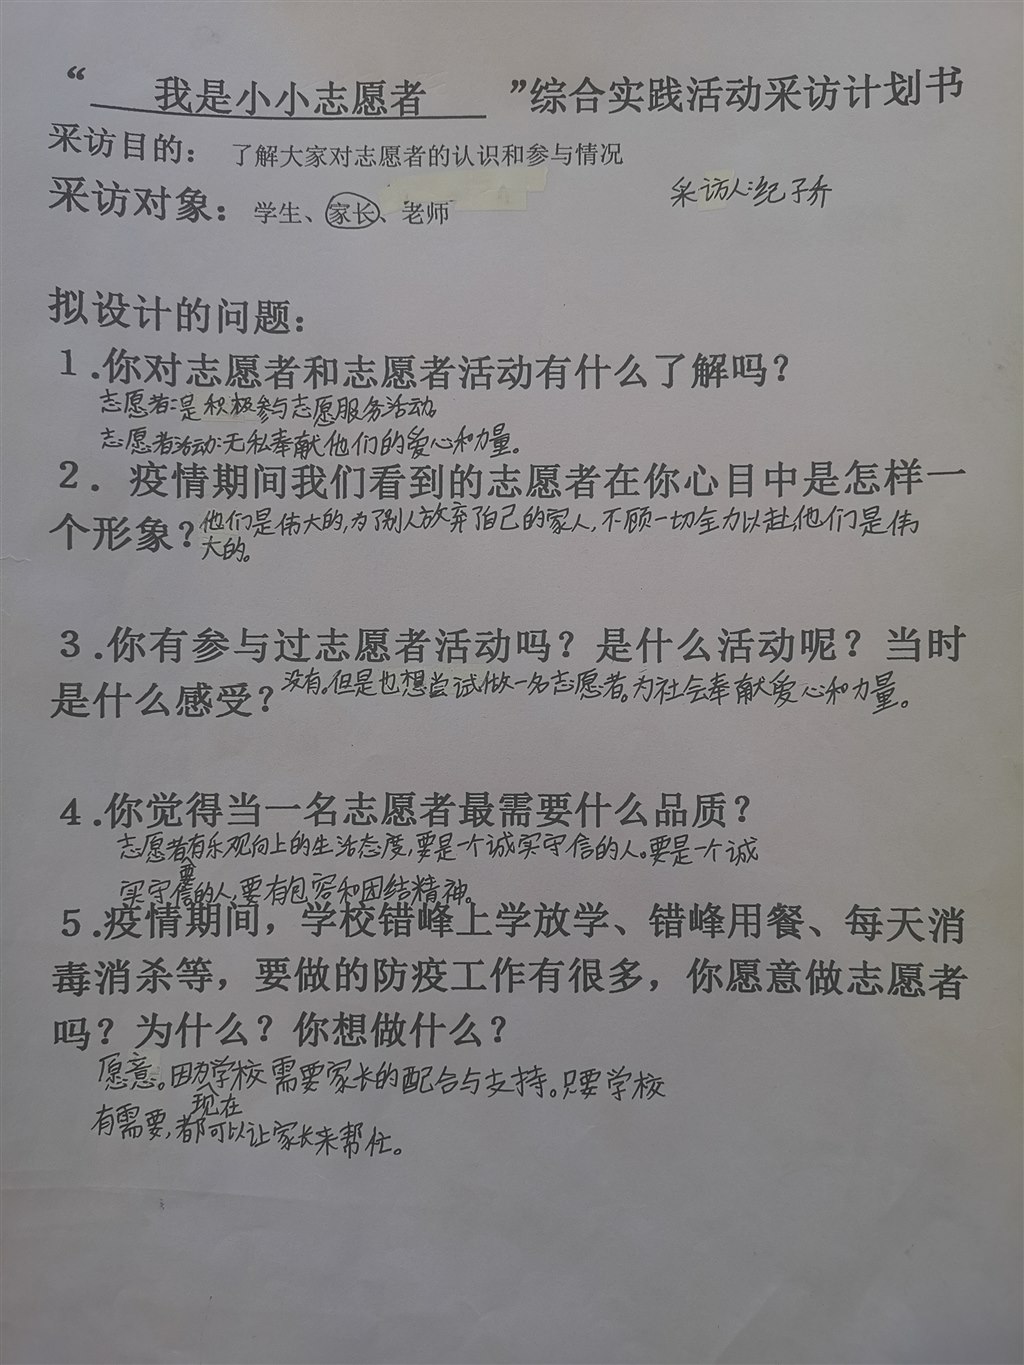 “ 我是小小志愿者 ”综合实践活动采访计划书
采访目的：了解大家对志愿者的认识和参与情况
采访对象：学生、家长、老师
采访人:纪子乔
拟设计的问题：
1.你对志愿者和志愿者活动有什么了解吗？
志愿者:是积极参与志愿服务活动。
志愿者活动:无私奉献他们的爱心和力量。
2. 疫情期间我们看到的志愿者在你心目中是怎样一
个形象？他们是伟大的,为了别人放弃了自己的家人,不顾一切全力以赴,他们是伟
大的。
3.你有参与过志愿者活动吗？是什么活动呢？当时
是什么感受？没有。但是也想尝试做一名志愿者。为社会奉献爱心和力量。
4.你觉得当一名志愿者最需要什么品质？
志愿者要有乐观向上的生活态度,要是一个诚实守信的人。要是一个诚
实守信的人,要有包容和团结精神。
5.疫情期间，学校错峰上学放学、错峰用餐、每天消
毒消杀等，要做的防疫工作有很多，你愿意做志愿者
吗？为什么？你想做什么？
愿意。因为现在学校需要家长的配合与支持。只要学校
有需要,都可以让家长来帮忙。